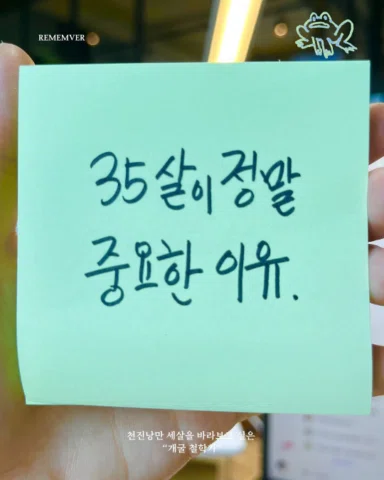 REMEMVER
35살이 정말
중요한 이유.
천진낭만 세살을 바라보고 싶은
"개굴 철학가"